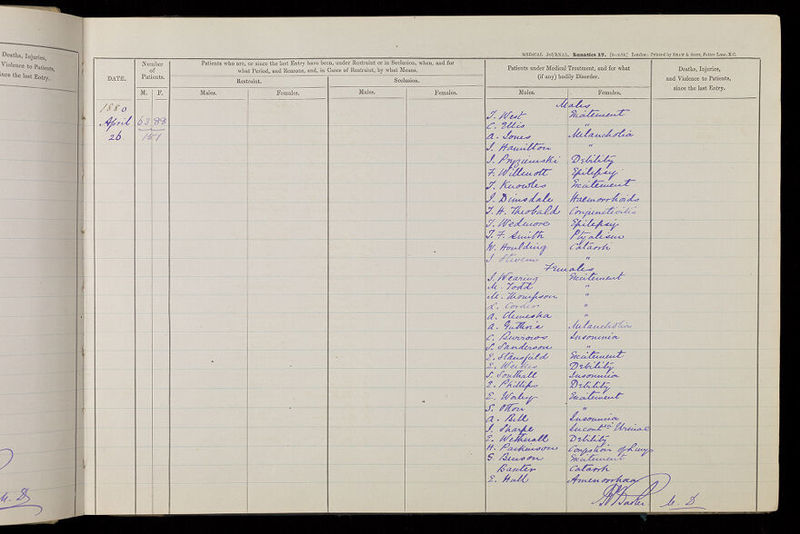 Deaths, Injuries,
Violence to Patients,
since the last Entry.
MEDICAL JOURNAL. Lunatics 17. London: Printed by SHAW & SONS, Fetter Lane, E.C.
DATE.
Number of Patients.
M. F.
Patients who are, or since the last Entry have been, under Restraint or in Seclusion, when, and for
what Period, and Reasons, and, in Cases of Restraint, by what Means.
Restraint. Seclusion.
Males. Females. Males. Females.
Patients under Medical Treatment, and for what
(if any) bodily Disorder.
Males. Females.
Deaths, Injuries,
and Violence to Patients,
since the last Entry.
1880
April 63 88
26 151
Males
J. West Excitement
C. Ellis "
A. Jones Melancholia
J. Hamilton "
J. Debility
F. Willmott Epilepsy
J. Knowles Excitement
J. Dimsdale Haemorrhoids
J. H. Theobald Conjunctivitis
J. Wedmore Epilepsy
J. F. Smith Ptyalism
W. Houlding Catarrh
J. Stevens "
Females
J. Wearing Excitement
M. Todd "
M. Thompson "
L. Corder "
A. Clemesha "
A. Guthrie Melancholia
C. Burrows Insomnia
S. Sanderson "
E. Stansfield Excitement
E. Debility
S. Southall Insomnia
E. Phillips Debility
E. Waley Excitement
S. Otton "
A. Bill Insomnia
J. Sharpe Incont. Urinae
E. Wetherall Debility
H. Parkinson Congestion of Lung
S Benson Excitement
Baxter Catarrh
E. Hall Amenorrhoea
Baxter M. D
M. D